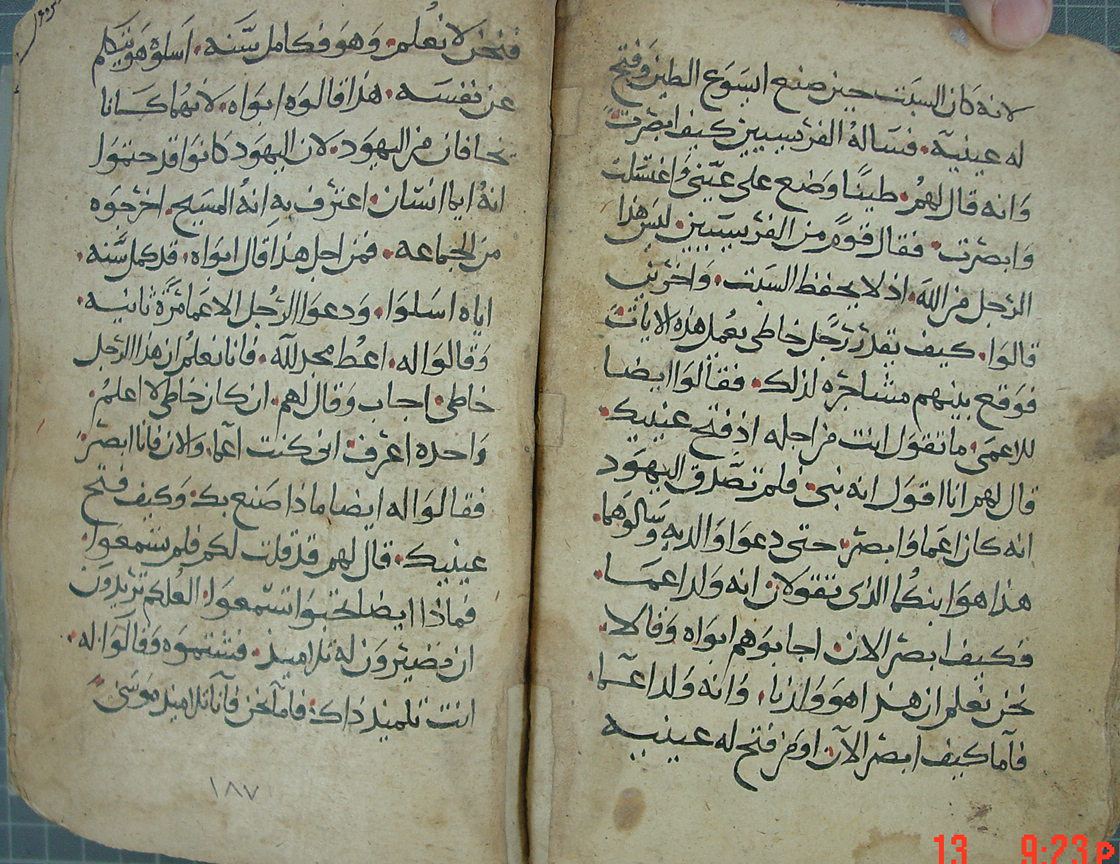 لانه كان السبت حين صنع ايسوع الطين وفتح
له عينيه. فساله الفريسيين كيف ابصرت
وانه قال لهم. طينا وضع على عيني واغتسلت
وابصرت. فقال قوم من الفريسيين. ليس هذا
الرجل من الله. اذ لا يحفظ السبت. واخرين
قالوا. كيف يقدر رجل خاطى يعمل هذه الايات
فوقع بينهم مشاجره لذلك. فقالوا ايضا
للاعمى. ما تقول انت من اجله اذ فتح عينيك.
قال لهم انا اقول انه نبي. فلم تصدق اليهود
انه كان اعما وابصر. حتى دعوا والديه وسالوهما.
هذا هوا ابنكما الذى تقولان انه ولد اعما.
فكيف ابصر الان. اجابوهم ابواه وقالا.
نحن نعلم ان هذا هو ولدنا. وانه ولد اعما.
فاما كيف ابصر الان. او من فتح له عينيه
فنحن لا نعلم. وهو فكامل سنه. اسلوه هو يتكلم
عن نفسه. هذا قالوه ابواه. لانهما كانا
يخافان من اليهود. لان اليهود كانوا قد حتموا
انه ايما انسان. اعترف به انه المسيح. اخرجوه
من الجماعه. فمن اجل هذا قال ابواه. قد كمل سنه.
اياه اسلوا. ودعوا الرجل الاعما مرة ثانيه.
وقالوا له. اعط مجد لله. فانا نعلم ان هذا الرجل
خاطى. اجاب وقال لهم. ان كان خاطى لا اعلم.
واحده اعرف. انى كنت اعما. والان فانا ابصر.
فقالوا له ايضا ماذا صنع بك. وكيف فتح
عينيك. قال لهم قد قلت لكم فلم تسمعوا.
فماذا ايضا تحبوا تستمعوا. العلكم تريدون
ان تضيرون له تلاميذ. فشتموه وقالوا له.
انت تلميذ ذاك. فاما نحن فانا تلاميذ موسى
١٨٧
13 9:23